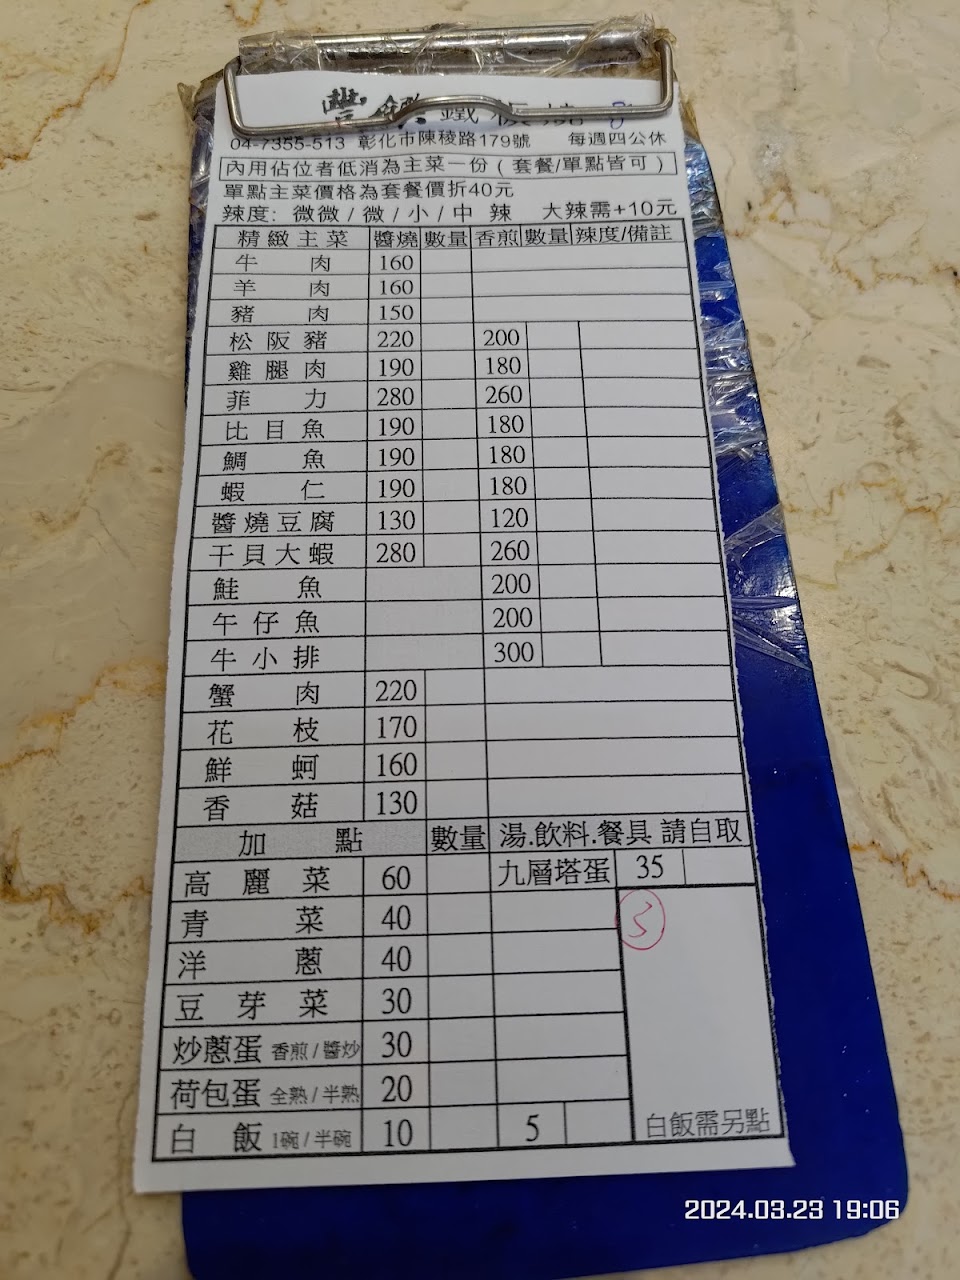 豐 鎮 鐵 板 燒 8
04-7355-513 彰化市陳稜路179號 每週四公休
內用佔位者低消為主菜一份（套餐/單點皆可）
單點主菜價格為套餐價折40元
辣度: 微微 / 微 / 小 / 中 辣 大辣需+10元
精緻主菜 醬燒 數量 香煎 數量 辣度/備註
牛肉 160
羊肉 160
豬肉 150
松阪豬 220 200
雞腿肉 190 180
菲力 280 260
比目魚 190 180
鯛魚 190 180
蝦仁 190 180
醬燒豆腐 130 120
干貝大蝦 280 260
鮭魚 200
午仔魚 200
牛小排 300
蟹肉 220
花枝 170
鮮蚵 160
香菇 130
加點 數量 湯.飲料.餐具 請自取
高麗菜 60 九層塔蛋 35
青菜 40 3
洋蔥 40
豆芽菜 30
炒蔥蛋 香煎 / 醬炒 30
荷包蛋 全熟 / 半熟 20
白飯 1碗 / 半碗 10 5 白飯需另點
2024.03.23 19:06